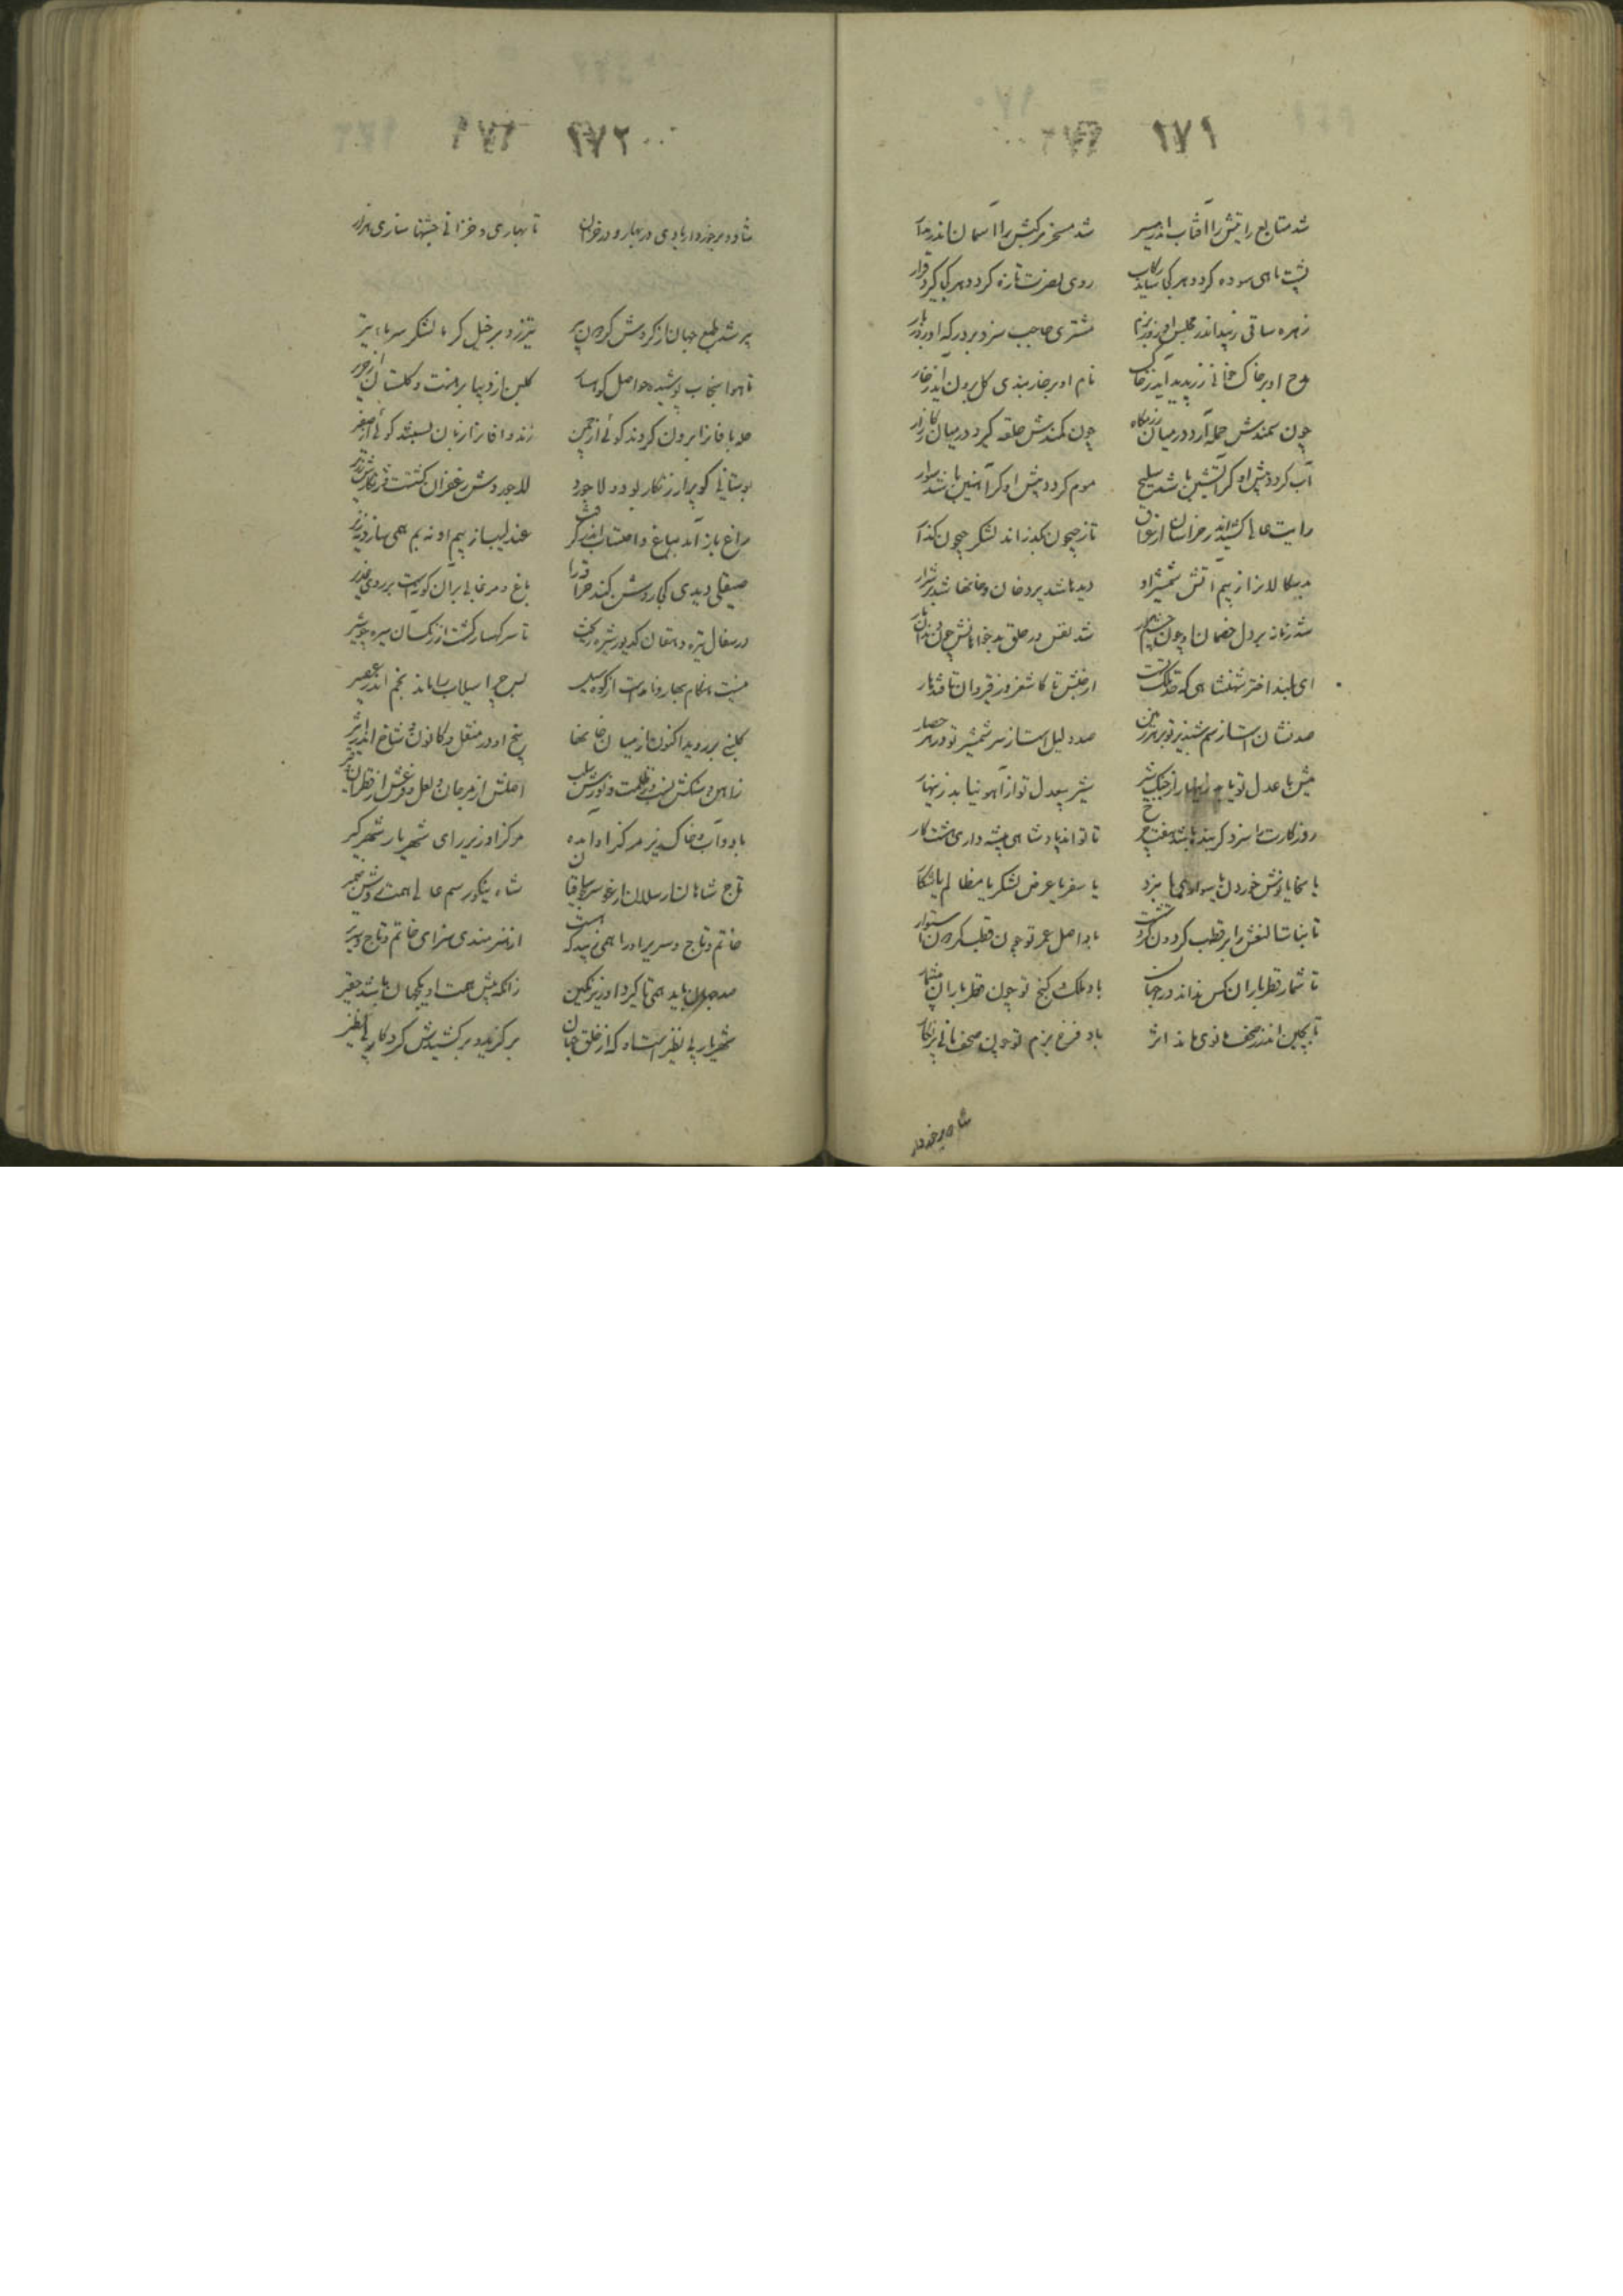 ۱۷۱
شد متابع رایتش را آفتاب اندر مسیر شد مسخر مرکبش را آسمان اندر مدار
پشت ماهی سوده گردد هر کجا ساید رکاب روی نصرت تازه گردد هر کجا گیرد قرار
زهره ساقی زیبد اندر مجلس او روز بزم مشتری حاجب سزد بر درگه او روز بار
مدح او بر خاک خوانی زر پدید آید ز خاک نام او بر خار بندی گل برون آید ز خار
چون سمندش حمله آرد در میان رزمگاه چون کمندش حلقه گیرد در میان کارزار
آب گردد پیش او گر آتشین باشد سلیح موم گردد پیش او گر آهنین باشد سوار
رایت عالی کشید اندر خراسان از عراق تا ز جیحون بگذراند لشکر جیحون گذار
بدسگالان را ز بیم آتش شمشیر او دیده‌ها شد پر دخان و جانها شد پر شرار
شد زبانه بر دل خصمان او چون شد نفس در حلق بدخواهانش چون دندان مار
ای بلند اختر شهنشاهی که حد ملکتت از ختن تا کاشغر وز قیروان تا قندهار
صد نشان است از سم شبدیز تو بر هر زمین صد دلیل است از سر شمشیر تو در هر حصار
میش با عدل تو یابد زینهار از چنگ شیر شیر بی عدل تو از آهو نیابد زینهار
روزگارت را سزد گر بنده باشد هفت چرخ تا تو اندر پادشاهی پیشه داری هشت کار
یا سخا یا نوش خوردن یا سواری یا نبرد یا سفر یا عرض لشکر یا مظالم یا شکار
تا بنات النعش را بر قطب گردون گشتنست باد اصل عمر تو چون قطب گردون استوار
تا شمار قطر باران کس نداند در جهان باد ملک و گنج تو چون قطر باران بی شمار
تا بچین اندر ز صحف مانوی ماند اثر باد فرخ بزم تو چون صحف مانی پر نگار
شاد و برخوردار
۱۷۲
شاد و برخوردار بادی در بهار و در خزان تا بهاری و خزانی جشنها سازی هزار
پیر شد طبع جهان از گردش گردون پیر تیر زد بر خیل گرما لشکر سرما به تیر
تا هوا سنجاب پوشید و حواصل کوهسار گلبن از دیبا برهنست و گلستان از حریر
حله بافان را برون کردند گوئی از چمن زند وافان را زبان بستند گوئی از صفیر
بوستانی کو پر از زنگار بود و لاجورد لاجوردش زعفران گشتست و زنگارش زریر
زاغ باز آمد بباغ و احتساب اندر گرفت عندلیب از بیم او نه بم همی سازد نه زیر
صیقلی دیدی کجا روشن کند خود را باغ و مرغابی بر آن گونه است بر روی غدیر
در سفال تیره دهقان کدیور شیره ریخت تا سر کهسار گشت از زنگسان تیره چو شیر
نیست هنگام بهار و نامدست از کوه سیل پس چرا سیلاب را ماند بخم اندر عصیر
گلبنی بر روید اکنون از میان خانها بیخ او در منقل و کانون و شاخ اندر اثیر
ز آهن و سنگش نسب وز ظلمت و نورش سلب اصلش از مرجان و لعل و فرعش از قطران و قیر
باد و آب و خاک نیز مرکز او آمده مرکز او زیر رای شهریار شهرگیر
تاج شاهان ارسلان ارغو سر سلجوقیان شاه نیکو رسم عالی همت روشن ضمیر
خاتم و تاج و سریر او را همی زیبد که هست از هنرمندی سزای خاتم و تاج و سریر
صد جهان باید همی تا گیرد او زیر نگین زانکه پیش همت او یک جهان باشد حقیر
شهریار بی نظیر است او که از خلق جهان برگزید و برکشیدش کردگار بی نظیر